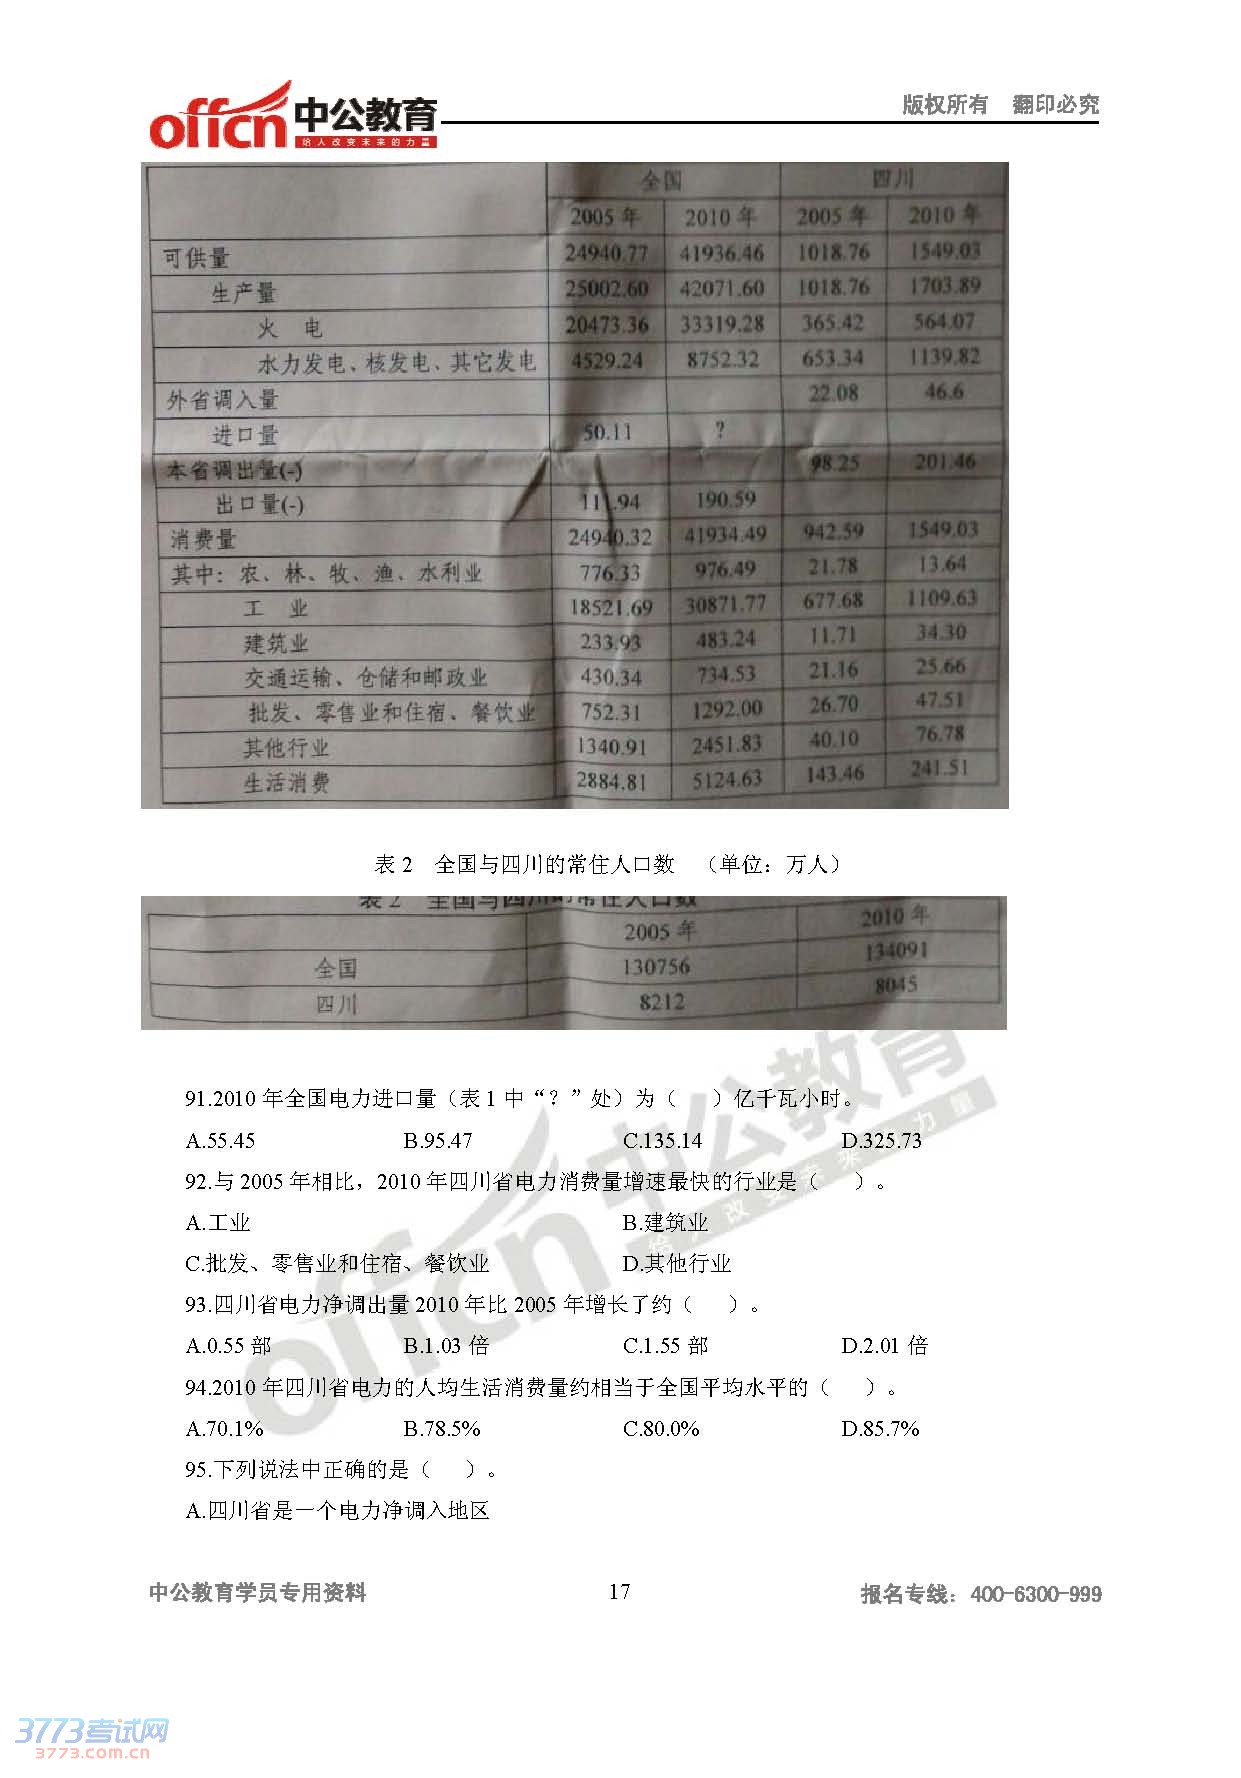 offcn 中公教育
给人改变未来的力量
版权所有 翻印必究
全国 四川
2005年 2010年 2005年 2010年
可供量 24940.77 41936.46 1018.76 1549.03
生产量 25002.60 42071.60 1018.76 1703.89
火 电 20473.36 33319.28 365.42 564.07
水力发电、核发电、其它发电 4529.24 8752.32 653.34 1139.82
外省调入量 22.08 46.6
进口量 50.11 ?
本省调出量(-) 98.25 201.46
出口量(-) 111.94 190.59
消费量 24940.32 41934.49 942.59 1549.03
其中：农、林、牧、渔、水利业 776.33 976.49 21.78 13.64
工 业 18521.69 30871.77 677.68 1109.63
建筑业 233.93 483.24 11.71 34.30
交通运输、仓储和邮政业 430.34 734.53 21.16 25.66
批发、零售业和住宿、餐饮业 752.31 1292.00 26.70 47.51
其他行业 1340.91 2451.83 40.10 76.78
生活消费 2884.81 5124.63 143.46 241.51
表 2 全国与四川的常住人口数 （单位：万人）
表2 全国与四川的常住人口数
2005年 2010年
全国 130756 134091
四川 8212 8045
91.2010 年全国电力进口量（表 1 中“？”处）为（ ）亿千瓦小时。
A.55.45 B.95.47 C.135.14 D.325.73
92.与 2005 年相比，2010 年四川省电力消费量增速最快的行业是（ ）。
A.工业 B.建筑业
C.批发、零售业和住宿、餐饮业 D.其他行业
93.四川省电力净调出量 2010 年比 2005 年增长了约（ ）。
A.0.55 部 B.1.03 倍 C.1.55 部 D.2.01 倍
94.2010 年四川省电力的人均生活消费量约相当于全国平均水平的（ ）。
A.70.1% B.78.5% C.80.0% D.85.7%
95.下列说法中正确的是（ ）。
A.四川省是一个电力净调入地区
offcn 中公教育
给人改变未来的力量
中公教育学员专用资料 17 报名专线：400-6300-999
3773考试网
3773.com.cn